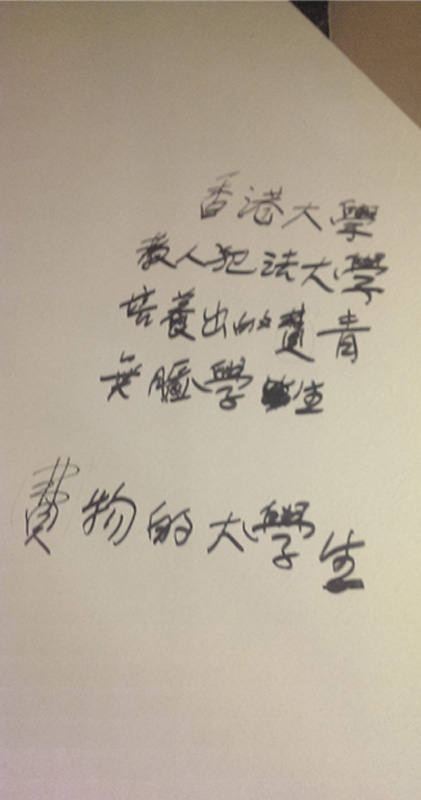 香港大學
教人犯法大學
培養出的費青
無腦學生
費物的大學生